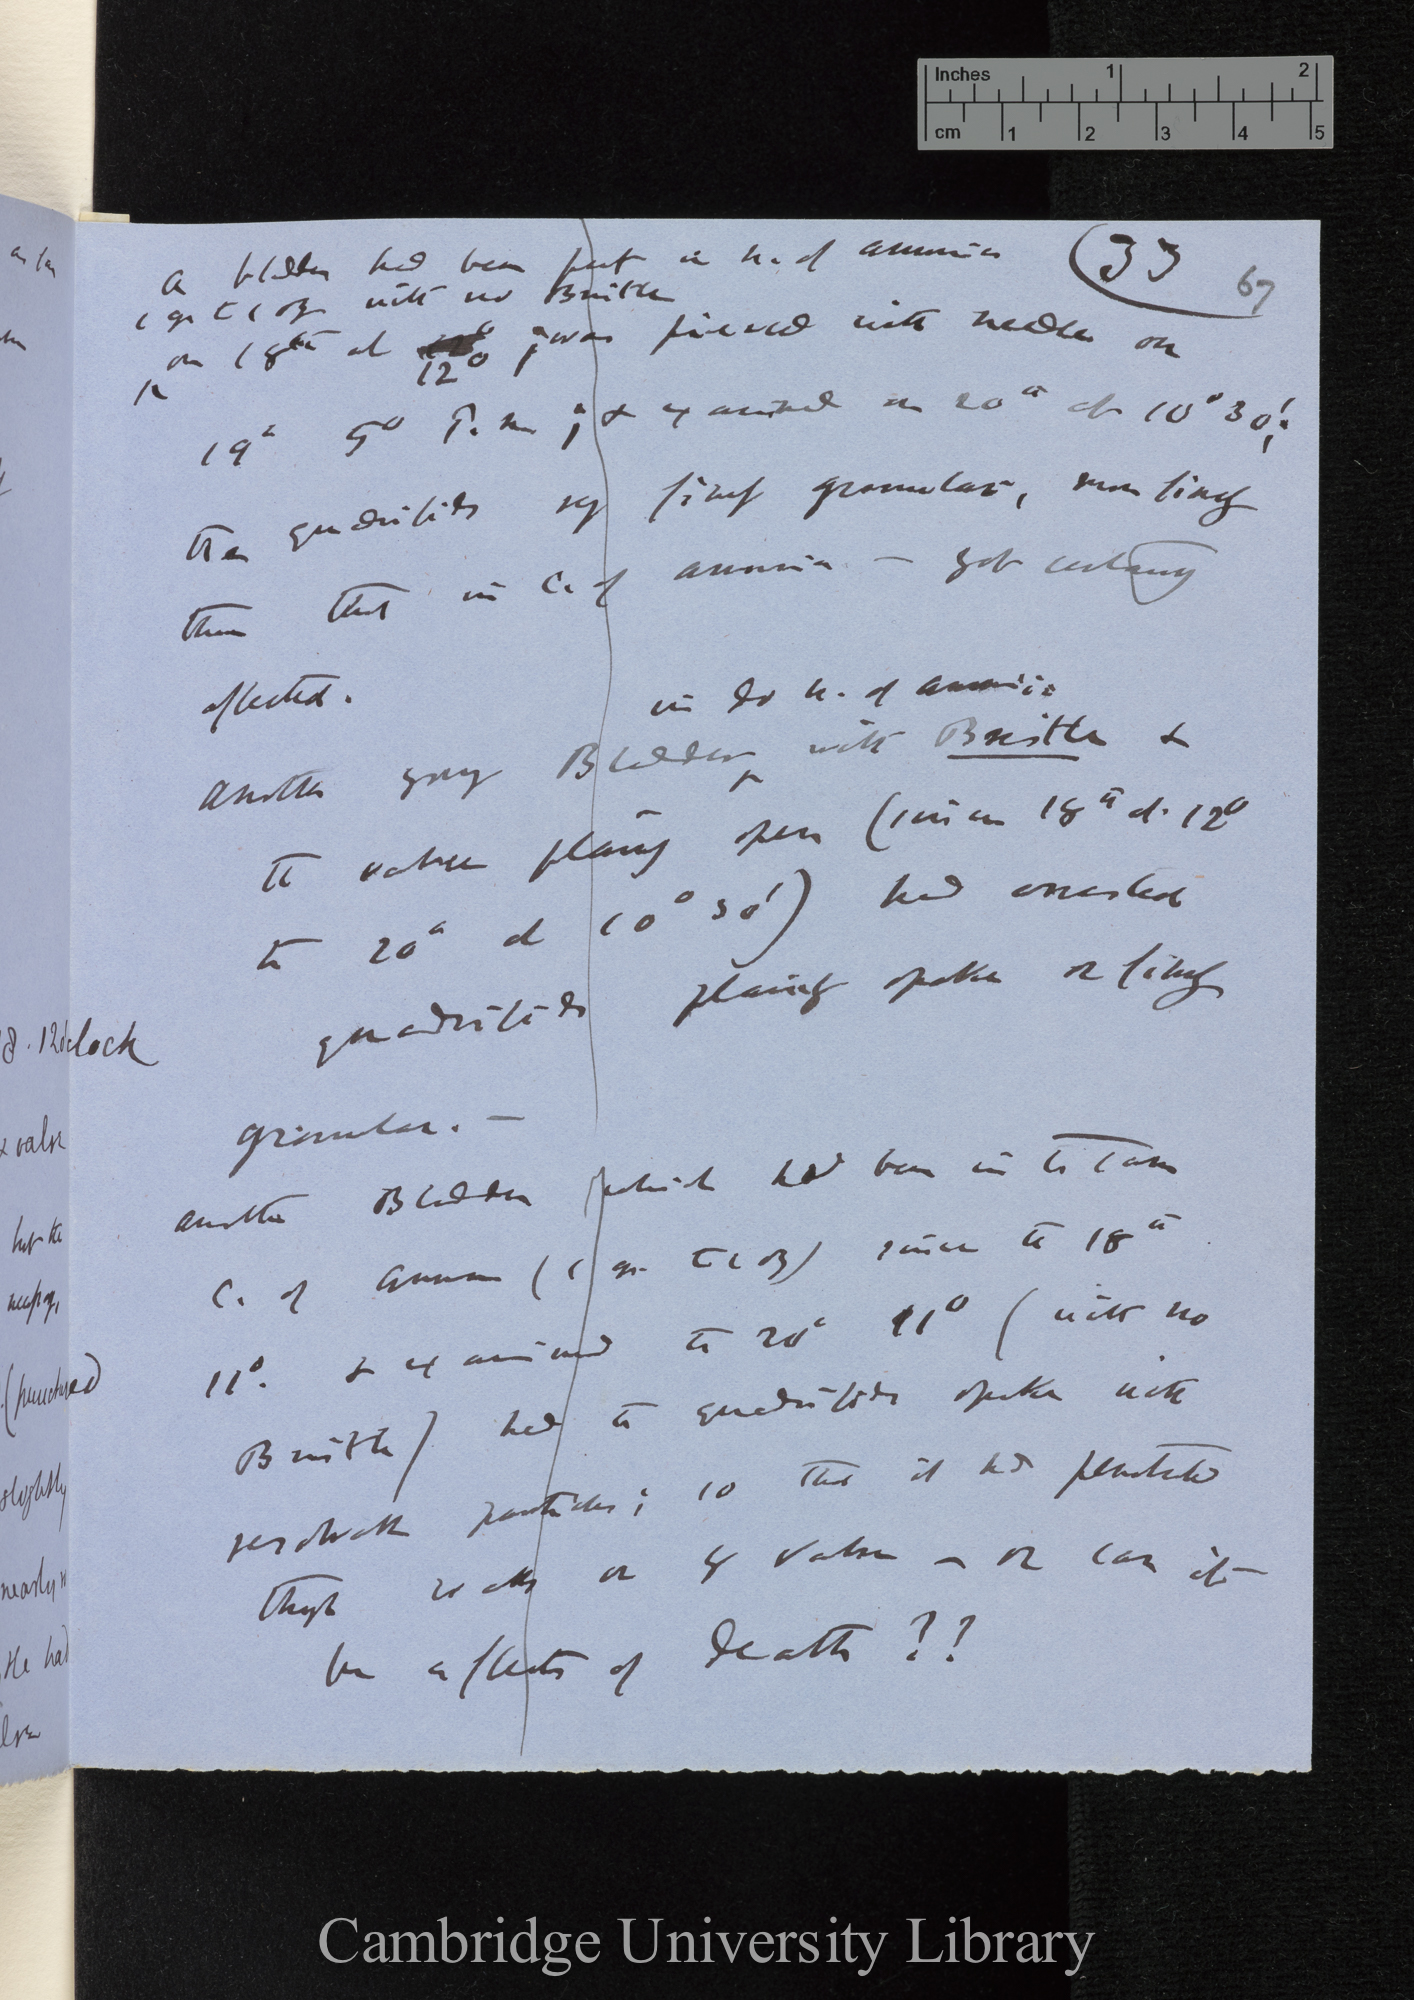 Inches 1 2
cm 1 2 3 4 5
(33
67
A bladder had been put in n. of ammonia
1 gr to 1 oz with no Bristle
on 18th at 12° ; was pierced with needle on
19th 5° P.m ; & examined on 20th at 10° 30';
the quadrifids very finely granular, more finely
than that in C. of ammonia — yet certainly
affected.
in do n. of ammonia
Another young Bladder with Bristle &
the valve plainly open (since 18th at 12°
to 20th at 10° 30') had
quadrifids plainly spoke or finely
granular. —
Another Bladder which had been in the same
C. of Ammon (1 gr. to 1 oz) since the 18th
11°. & examined the 20th 11° (with no
Bristle) had the quadrifids spoke with
particles; so that it had penetrated
through walls or by valve — or can it
be effects of death ??
18. 12 o'clock
& valve
but the
(punctured
slightly
nearly
had
Cambridge University Library